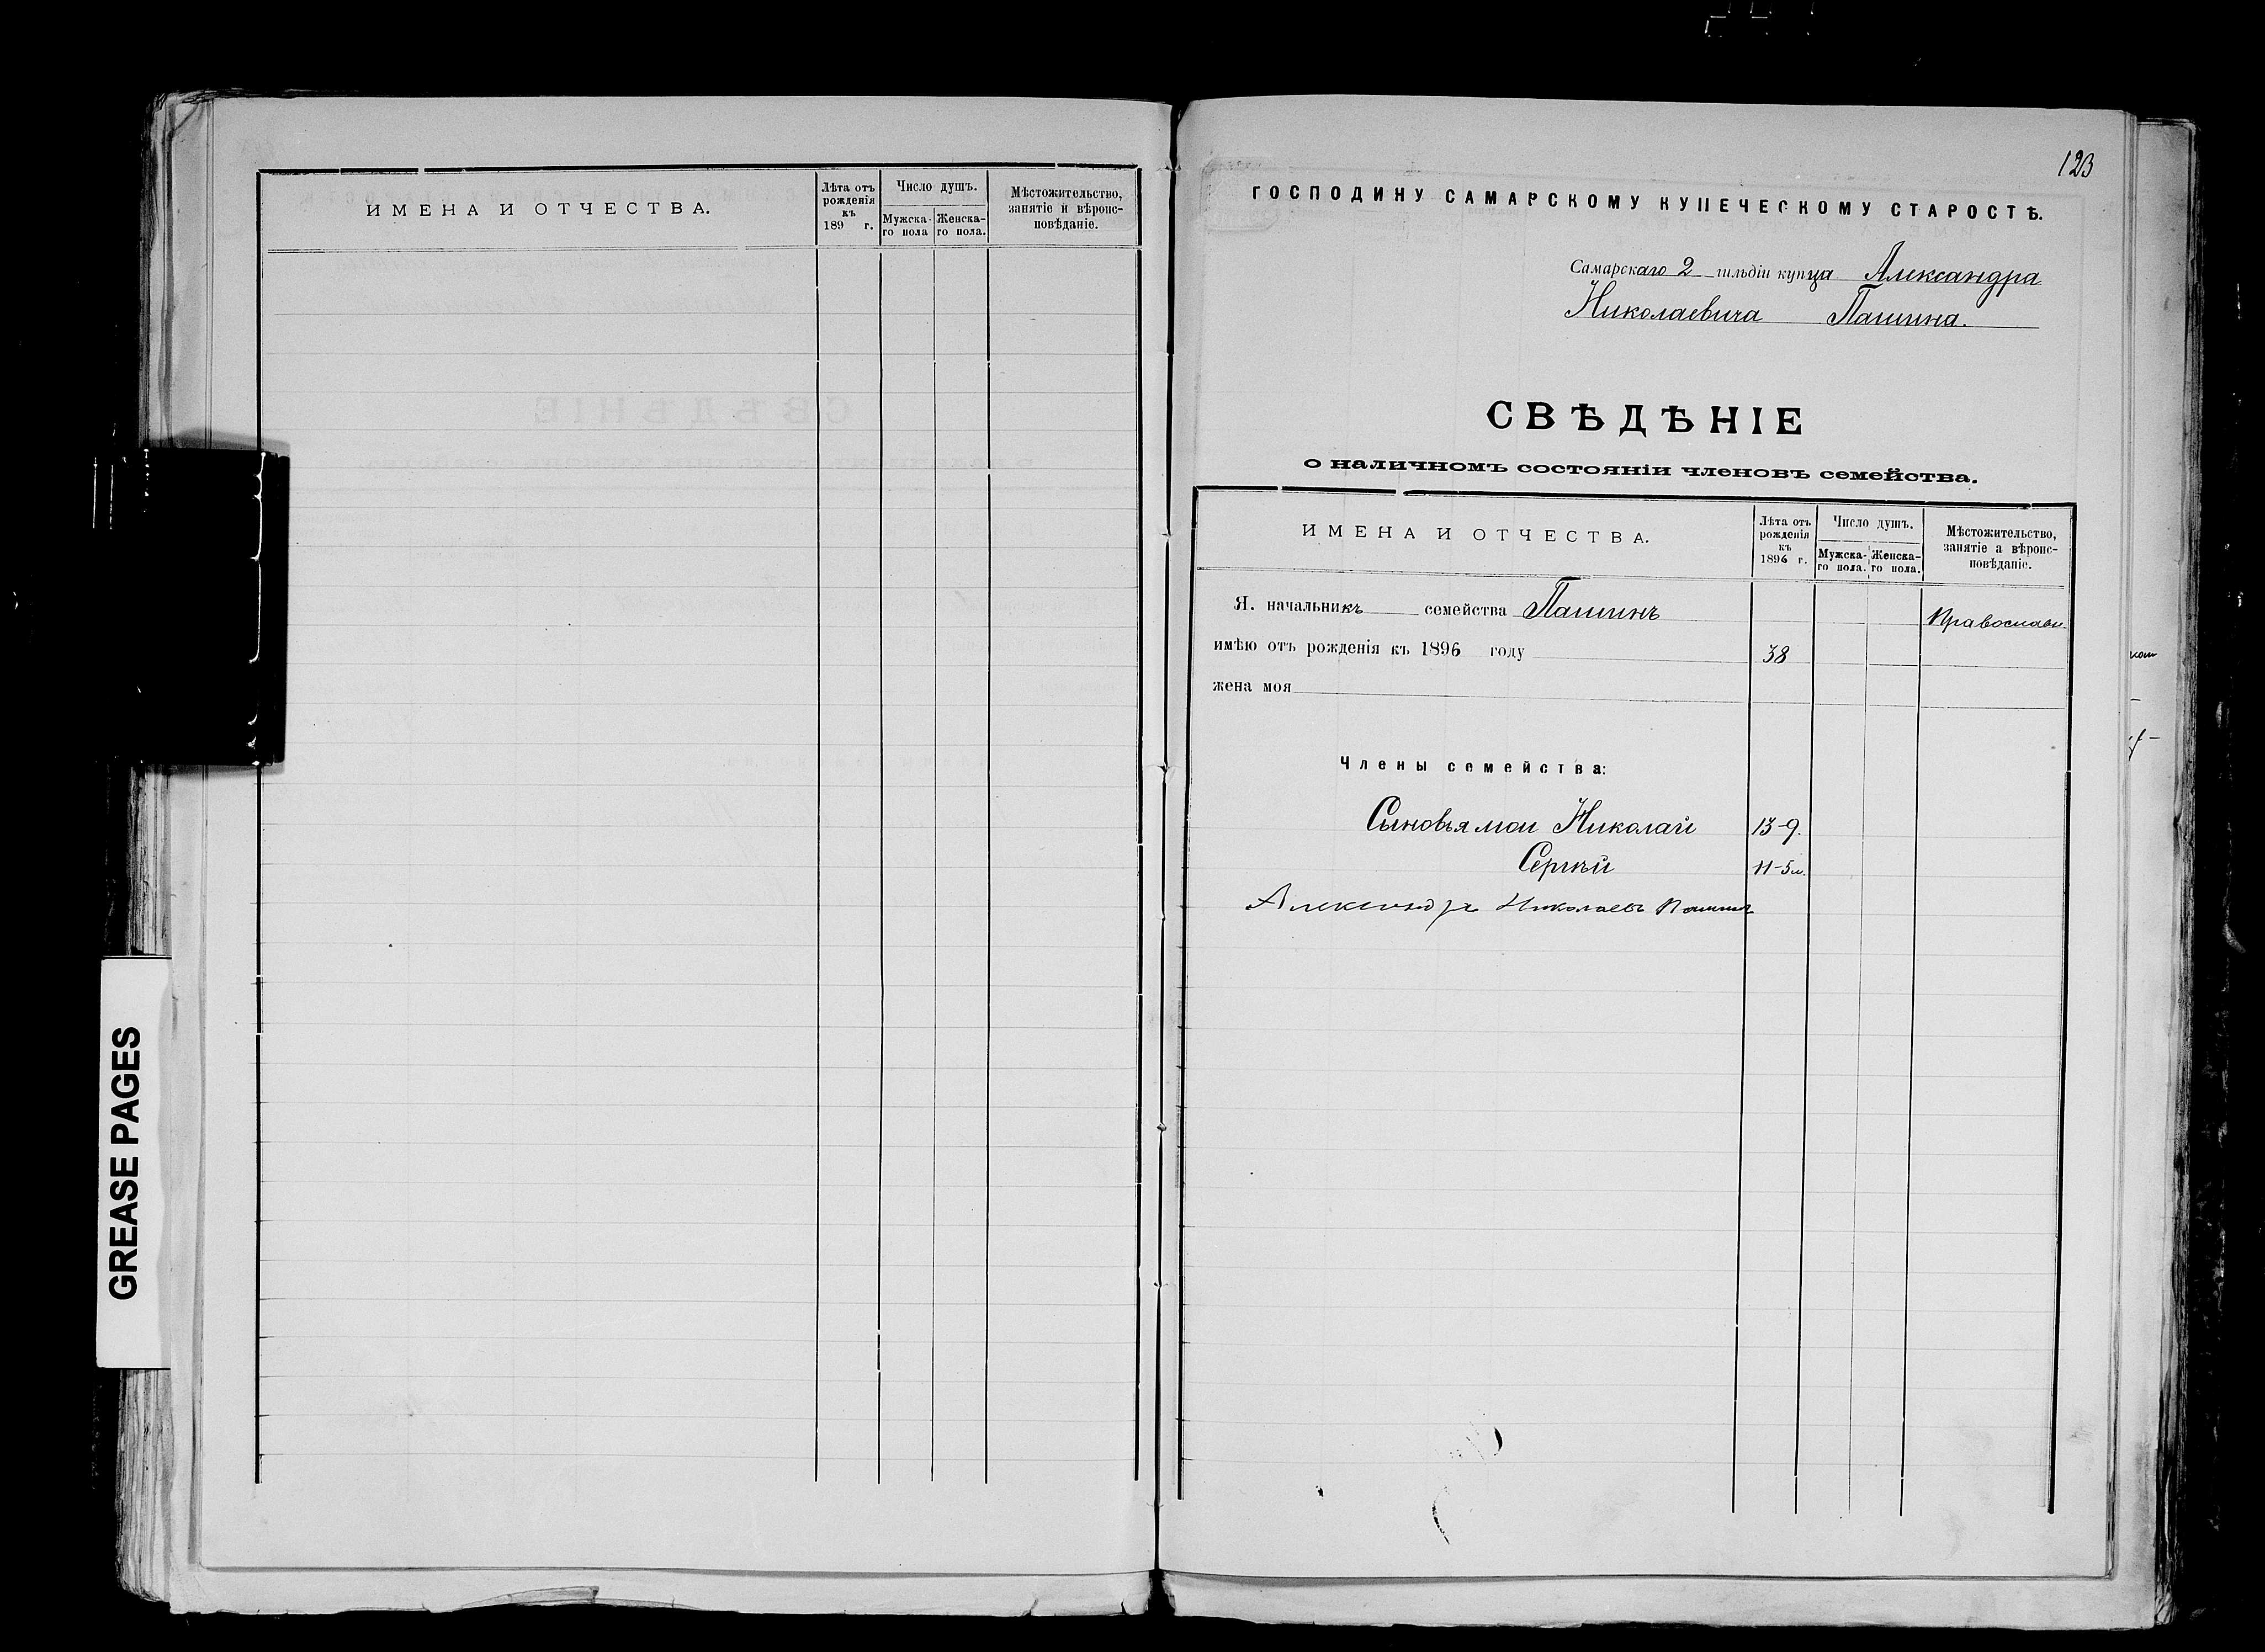 ИМЕНА И ОТЧЕСТВА.
Лѣта отъ рожденія къ 189 г.
Число душъ.
Мужска-го пола
Женска-го пола.
Мѣстожительство, занятіе и вѣроис-повѣданіе.
GREASE PAGES
123
ГОСПОДИНУ САМАРСКОМУ КУПЕЧЕСКОМУ СТАРОСТѢ.
Самарскаго 2 гильдіи купца Александра
Николаевича Пашина.
СВѢДѢНІЕ
о наличномъ состояніи членовъ семейства.
ИМЕНА И ОТЧЕСТВА.
Лѣта отъ рожденія къ 1896 г.
Число душъ.
Мужска-го пола.
Женска-го пола.
Мѣстожительство, занятіе а вѣроис-повѣданіе.
Я. начальникъ семейства Пашинъ Православн.
имѣю отъ рожденія къ 1896 году 38
жена моя
Члены семейства:
Сыновья мои Николай 13-9.
Сергѣй 11-5м.
Александръ Николаевъ Пашинъ